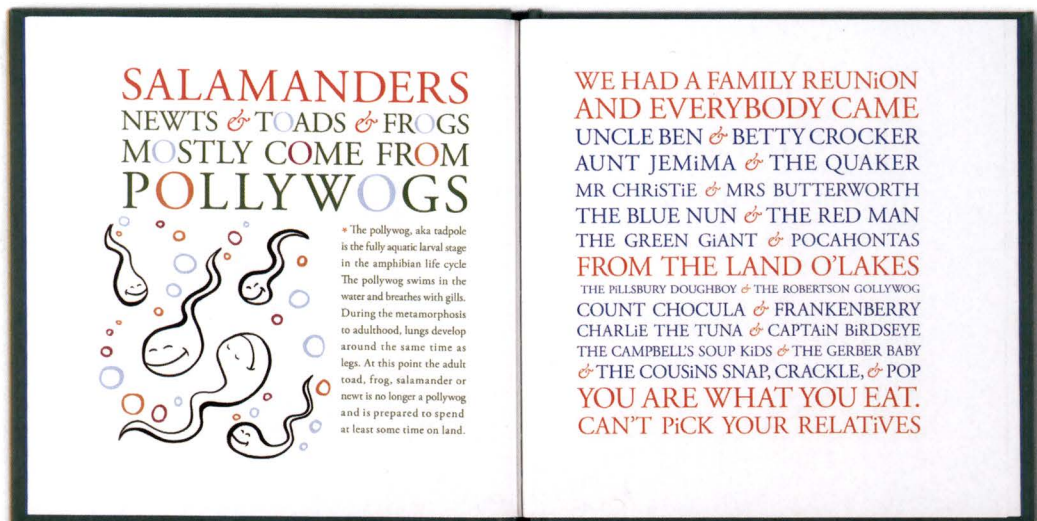 SALAMANDERS
NEWTS & TOADS & FROGS
MOSTLY COME FROM
POLLYWOGS
* The pollywog, aka tadpole
is the fully aquatic larval stage
in the amphibian life cycle
The pollywog swims in the
water and breathes with gills.
During the metamorphosis
to adulthood, lungs develop
around the same time as
legs. At this point the adult
toad, frog, salamander or
newt is no longer a pollywog
and is prepared to spend
at least some time on land.
WE HAD A FAMILY REUNiON
AND EVERYBODY CAME
UNCLE BEN & BETTY CROCKER
AUNT JEMiMA & THE QUAKER
MR CHRiSTiE & MRS BUTTERWORTH
THE BLUE NUN & THE RED MAN
THE GREEN GiANT & POCAHONTAS
FROM THE LAND O'LAKES
THE PiLLSBURY DOUGHBOY & THE ROBERTSON GOLLYWOG
COUNT CHOCULA & FRANKENBERRY
CHARLiE THE TUNA & CAPTAiN BiRDSEYE
THE CAMPBELL'S SOUP KiDS & THE GERBER BABY
& THE COUSiNS SNAP, CRACKLE, & POP
YOU ARE WHAT YOU EAT.
CAN'T PiCK YOUR RELATiVES